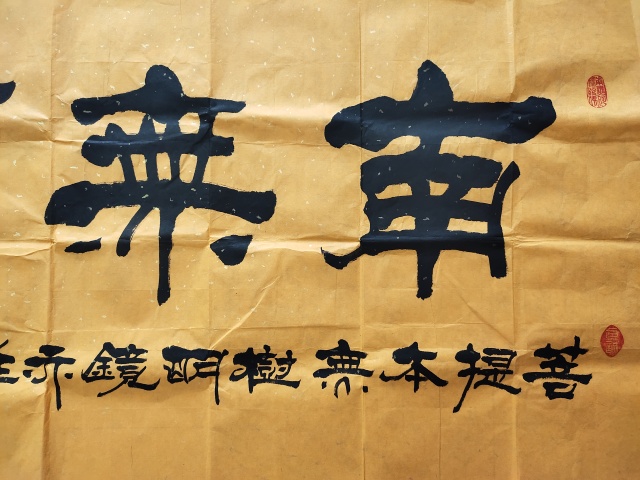 南無
菩提本無樹明鏡亦